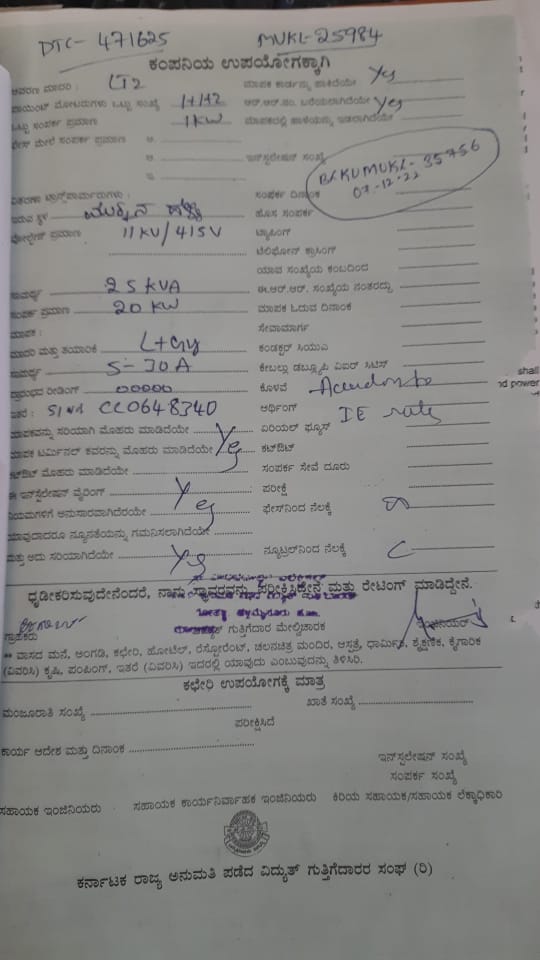 DTC- 471625 MUKL-25984
ಕಂಪನಿಯ ಉಪಯೋಗಕ್ಕಾಗಿ
ಮಾದರಿ : LT2 ಮಾಪಕ ಕಾರ್ಡನ್ನು ಹಾಕಿದೆಯೇ Yes
ಪಾಯಿಂಟ್ ಮೋಟರುಗಳು ಒಟ್ಟು ಸಂಖ್ಯೆ 1+1+2 ಆರ್.ಆರ್.ನಂ. ಬರೆಯಲಾಗಿದೆಯೇ Yes
ಒಟ್ಟು ಸಂಪರ್ಕ ಪ್ರಮಾಣ 1KW ಮಾಪಕದಲ್ಲಿ ಹಾಳೆಯನ್ನು ಇಡಲಾಗಿದೆಯೇ
ಫೇಸ್ ಮೇಲೆ ಸಂಪರ್ಕ ಪ್ರಮಾಣ ಎ.
ಇನ್‌ಸ್ಟಲೇಷನ್ ಸಂಖ್ಯೆ
BCKUMUKL-35756
07-12-22
ವಿತರಣಾ ಟ್ರಾನ್ಸ್‌ಫಾರ್ಮರುಗಳು : ಸಂಪರ್ಕ ದಿನಾಂಕ
ಸ್ಥಳ ಹೊಸ ಸಂಪರ್ಕ
ವೋಲ್ಟೇಜ್ ಪ್ರಮಾಣ 11KV/415V ಟ್ಯಾಪಿಂಗ್
ಟೆಲಿಫೋನ್ ಕ್ರಾಸಿಂಗ್
ಯಾವ ಸಂಖ್ಯೆಯ ಕಂಬದಿಂದ
ಸಾಮರ್ಥ್ಯ 25 KVA ಈ.ಆರ್.ಆರ್. ಸಂಖ್ಯೆಯ ನಂತರದ್ದು
ಸಂಪರ್ಕ ಪ್ರಮಾಣ 20 KW ಮಾಪಕ ಓದುವ ದಿನಾಂಕ
ಮಾಪಕ : ಸೇವಾಮಾರ್ಗ
ಮಾದರಿ ಮತ್ತು ತಯಾರಿಕೆ L+Gy ಕಂಡಕ್ಟರ್ ಸಿಯುಎ
ಸಾಮರ್ಥ್ಯ 5-30A
ಪ್ರಾರಂಭದ ರೀಡಿಂಗ್ 00000 ಕೊಳವೆ
ಇತರೆ : Sl no CC0648340 ಅರ್ಥಿಂಗ್ IE rules
ಮಾಪಕವನ್ನು ಸರಿಯಾಗಿ ಮೊಹರು ಮಾಡಿದೆಯೇ Yes ಏರಿಯಲ್ ಫ್ಯೂಸ್
ಮಾಪಕ ಟರ್ಮಿನಲ್ ಕವರನ್ನು ಮೊಹರು ಮಾಡಿದೆಯೇ ಕಟ್‌ಔಟ್
ಕಟ್‌ಔಟ್ ಮೊಹರು ಮಾಡಿದೆಯೇ ಸಂಪರ್ಕ ಸೇವೆ ದೂರು
ಈ ಇನ್‌ಸ್ಟಲೇಷನ್ ವೈರಿಂಗ್ Yes ಪರೀಕ್ಷೆ
ನಿಯಮಗಳಿಗೆ ಅನುಸಾರವಾಗಿದೆಯೇ ಫೇಸ್‌ನಿಂದ ನೆಲಕ್ಕೆ
ಯಾವುದಾದರೂ ನ್ಯೂನತೆಯನ್ನು ಗಮನಿಸಲಾಗಿದೆಯೇ
ಮತ್ತು ಅದು ಸರಿಯಾಗಿದೆಯೇ Yes ನ್ಯೂಟ್ರಲ್‌ನಿಂದ ನೆಲಕ್ಕೆ
ಧೃಡೀಕರಿಸುವುದೇನೆಂದರೆ, ನಾನು ಸ್ಥಾವರವನ್ನು ಪರೀಕ್ಷಿಸಿದ್ದೇನೆ ಮತ್ತು ರೇಟಿಂಗ್ ಮಾಡಿದ್ದೇನೆ.
ಗ್ರಾಹಕರು ಗುತ್ತಿಗೆದಾರ ಮೇಲ್ವಿಚಾರಕ ಇಂಜಿನಿಯರ್
** ವಾಸದ ಮನೆ, ಅಂಗಡಿ, ಕಛೇರಿ, ಹೋಟೆಲ್, ರೆಸ್ಟೋರೆಂಟ್, ಚಲನಚಿತ್ರ ಮಂದಿರ, ಆಸ್ಪತ್ರೆ, ಧಾರ್ಮಿಕ, ಶೈಕ್ಷಣಿಕ, ಕೈಗಾರಿಕ
(ವಿವರಿಸಿ) ಕೃಷಿ, ಪಂಪಿಂಗ್, ಇತರೆ (ವಿವರಿಸಿ) ಇದರಲ್ಲಿ ಯಾವುದು ಎಂಬುವುದನ್ನು ತಿಳಿಸಿರಿ.
ಕಛೇರಿ ಉಪಯೋಗಕ್ಕೆ ಮಾತ್ರ
ಮಂಜೂರಾತಿ ಸಂಖ್ಯೆ ಖಾತೆ ಸಂಖ್ಯೆ
ಪರೀಕ್ಷಿಸಿದೆ
ಕಾರ್ಯ ಆದೇಶ ಮತ್ತು ದಿನಾಂಕ
ಇನ್‌ಸ್ಟಲೇಷನ್ ಸಂಖ್ಯೆ
ಸಂಪರ್ಕ ಸಂಖ್ಯೆ
ಸಹಾಯಕ ಇಂಜಿನಿಯರು ಸಹಾಯಕ ಕಾರ್ಯನಿರ್ವಾಹಕ ಇಂಜಿನಿಯರು ಕಿರಿಯ ಸಹಾಯಕ/ಸಹಾಯಕ ಲೆಕ್ಕಾಧಿಕಾರಿ
ಕರ್ನಾಟಕ ರಾಜ್ಯ ಅನುಮತಿ ಪಡೆದ ವಿದ್ಯುತ್ ಗುತ್ತಿಗೆದಾರರ ಸಂಘ (ರಿ)
shall
nd power